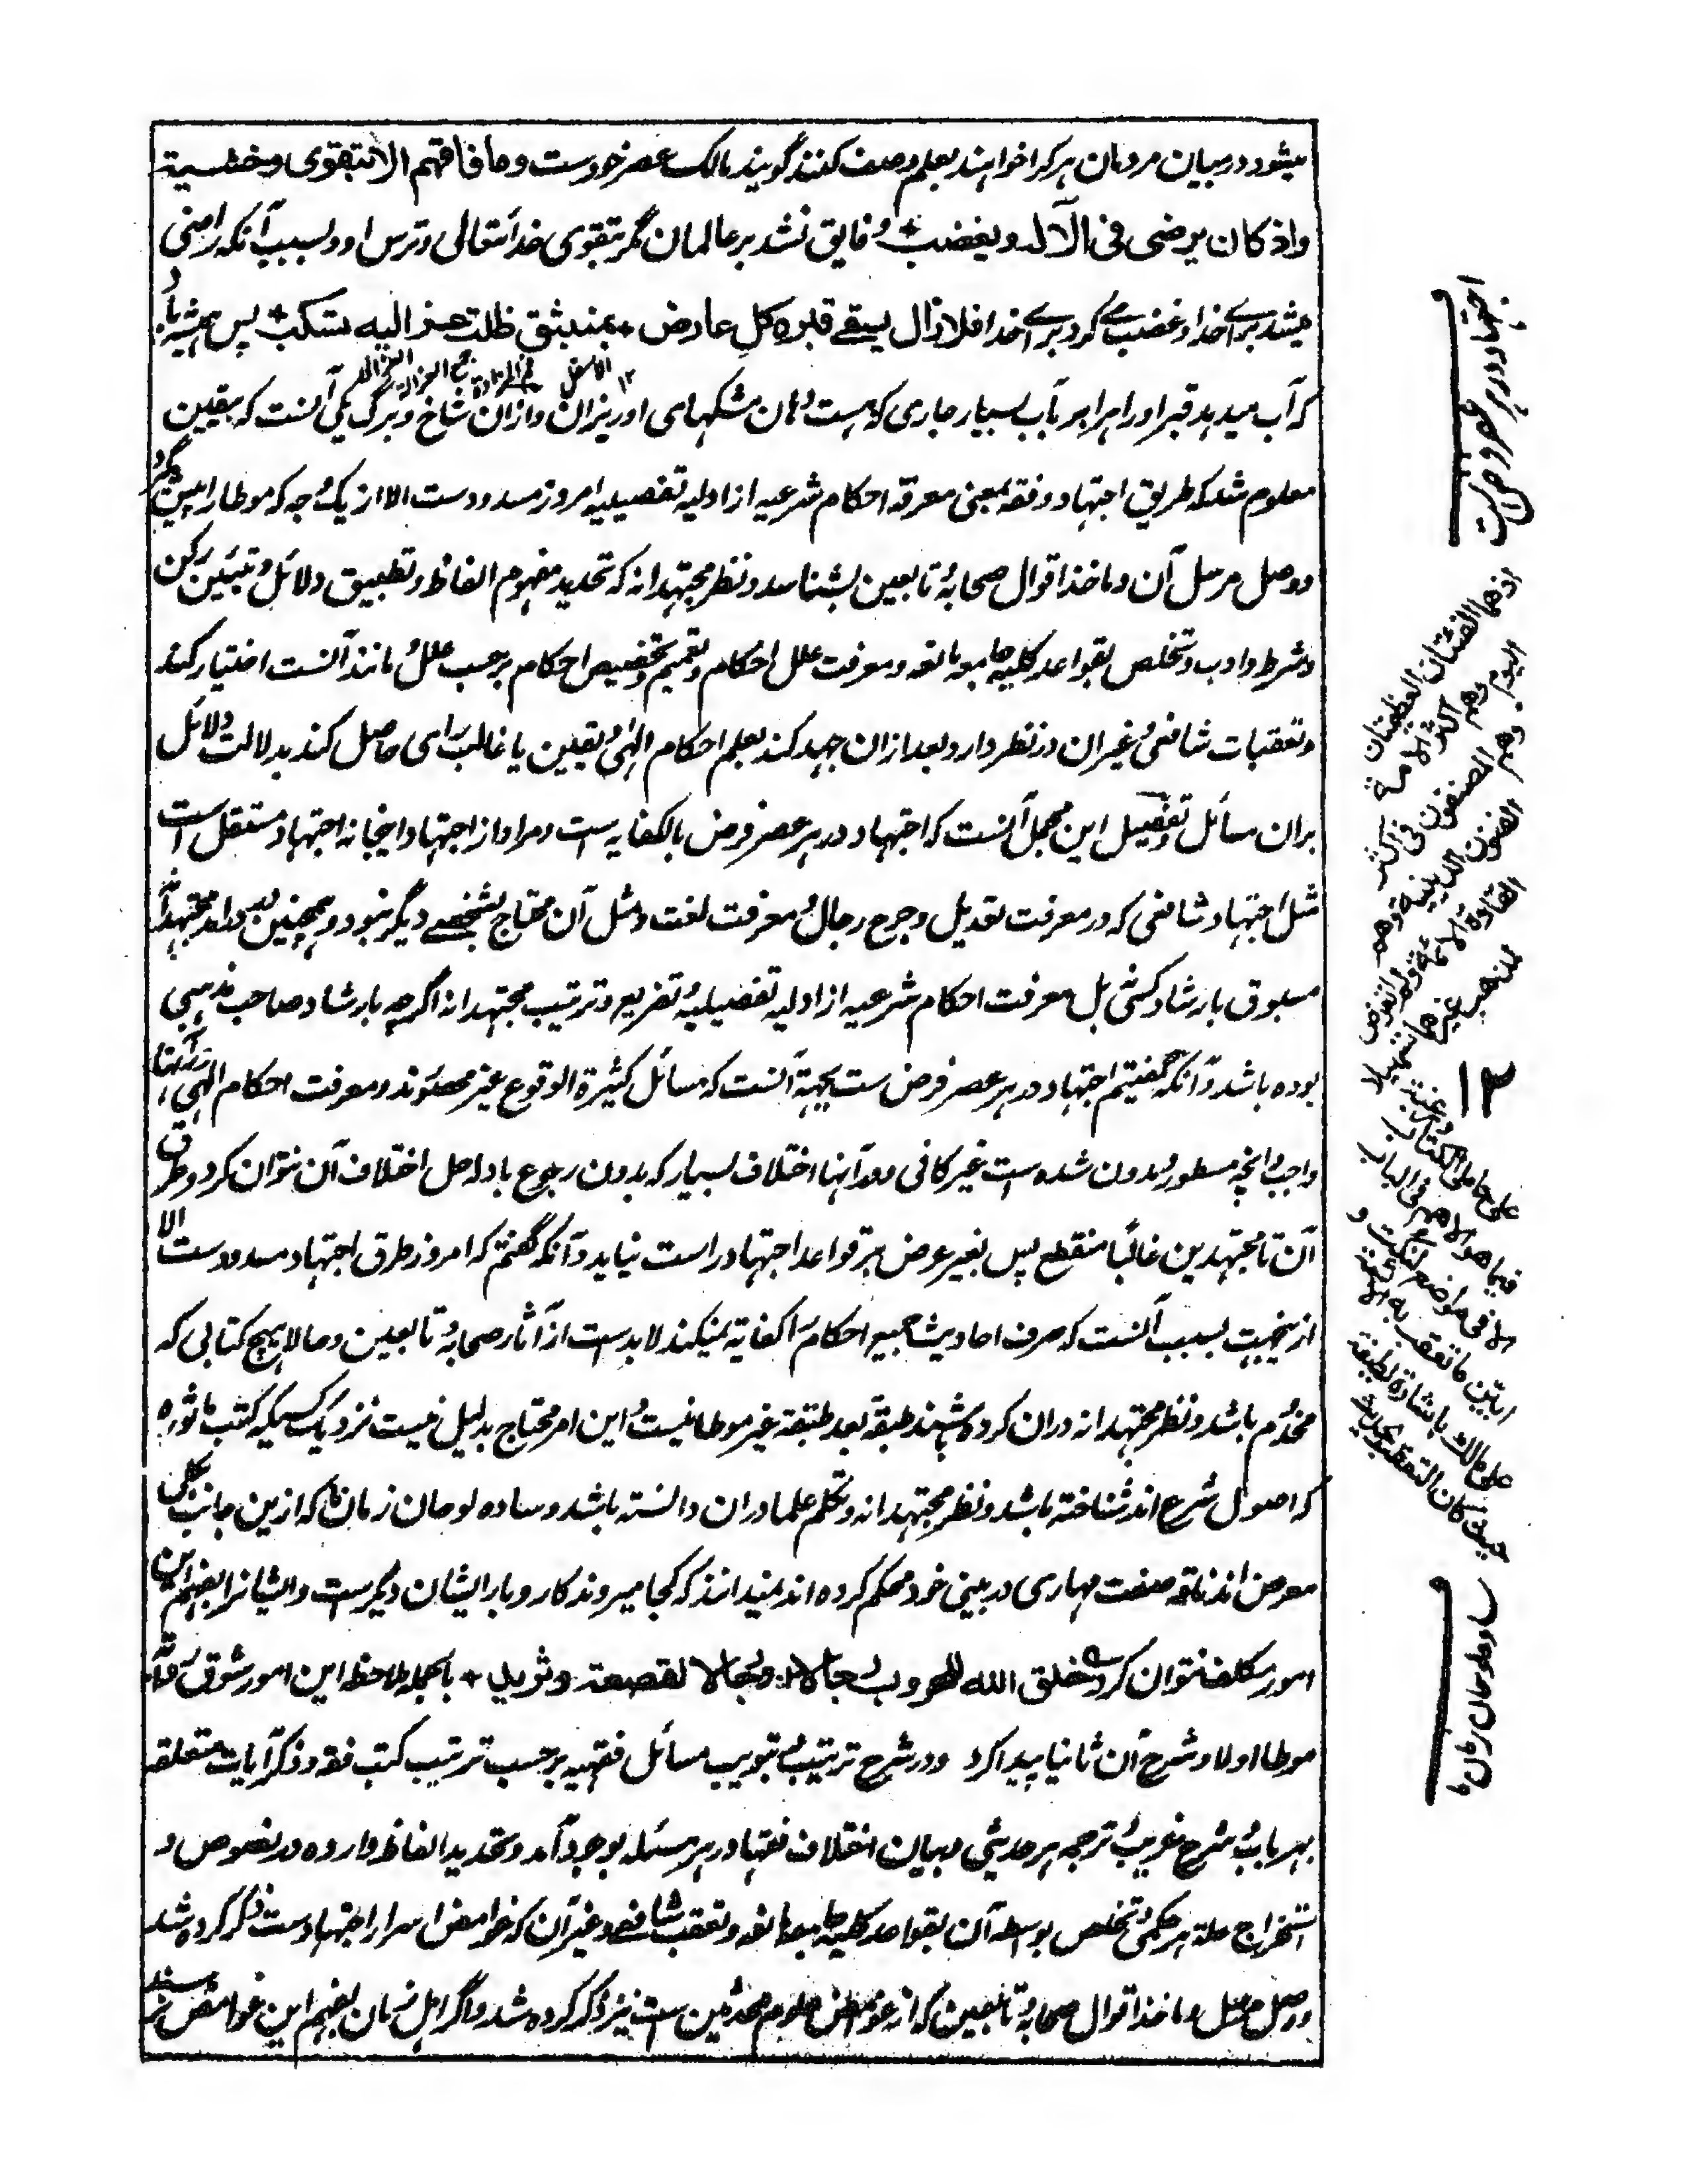 میشود در میان مردمان هر کرا خواهند بعلم وصف کنند گویند مالک عصر خودست وما فاقهم الا بتقوی وخشیة
واذ کان یرضی فی الاله ویغضب + و فایق نشد بر عالمان مگر بتقوی خدا تعالی وترس او وبسبب آنکه راضی
میشد برای خدا و غضب می کرد برای خدا فلا زال یسقی قبره کل عارض + بمنبثق ظلت عزالیه تسکب + پس همیشه باد
که آب میدهد قبر او را هر ابر بآب بسیار جاری که هست دهان مشکهای او ریزان و ازان شاخ و برگ یکی آنست که بیقین
معلوم شد که طریق اجتهاد و فقه بمعنی معرفة احکام شرعیه از ادلیه تفصیلیه امروز مسدودست الا از یک وجه که موطا را پیش گیرد
ووصل مرسل آن و ماخذ اقوال صحابه و تابعین بشناسد و نظر مجتهدانه که تحدید مفهوم الفاظ و تطبیق دلائل و تبیین رکن
وشرط و ادب و تخلص بقواعد کلیه جامعه مانعه و معرفت علل احکام و تعمیم و تخصیص احکام برحسب علل و مانند آنست اختیار کند
وتعقبات شافعی و غیر آن در نظر دارد و بعد ازان جهد کند بعلم احکام الهی بیقین یا غالب رای حاصل کند بدلالت دلائل
بران مسائل و تفصیل این مجمل آنست که اجتهاد در هر عصر فرض بالکفایه ست و مراد از اجتهاد اینجا نه اجتهاد مستقل است
مثل اجتهاد شافعی که در معرفت تعدیل و جرح رجال و معرفت لغت و مثل آن محتاج بشخصی دیگر نبود و همچنین
مسبوق بارشاد کسی بل معرفت احکام شرعیه از ادلیه تفصیلیه و تفریع و ترتیب مجتهدانه اگرچه بارشاد صاحب مذهبی
بوده باشد و آنکه گفتیم اجتهاد در هر عصر فرض ست بجهة آنست که مسائل کثیرة الوقوع غیر محصورند و معرفت احکام الهی در آنها
واجب و آنچه مسطور و مدون شده ست غیر کافی و در آنها اختلاف بسیار که بدون رجوع بادله حل اختلاف آن نتوان کرد و طرق
آن تا مجتهدین غالبا منقطع پس بغیر عرض بر قواعد اجتهاد راست نیاید و آنکه گفتم که امروز طرق اجتهاد مسدودست الا
ازینجهت بسبب آنست که صرف احادیث جمیع احکام را کفایة نمیکند لابدست از آثار صحابه و تابعین و حالا هیچ کتابی که
مخدوم باشد و نظر مجتهدانه دران کرده باشند طبقة بعد طبقة غیر موطا نیست و این امر محتاج بدلیل نیست نزدیک کسیکه کتب ماثوره
که اصول شرع اند شناخته باشد و نظر مجتهدانه و تکلم علما دران دانسته باشد و ساده لوحان زمان ما که ازین جانب بکلی
معرض اند ناقه صفت مهاری در بینی خود محکم کرده اند نمیدانند که کجا میروند کار و بار ایشان دیگرست و ایشانرا بفهم این
امور مکلف نتوان کرد خلق الله للحروب رجالا + ورجالا لقصعة وثرید + بالجمله ملاحظه این امور شوق
موطا اولا و شرح آن ثانیا پیدا کرد و در شرح ترتیب و تبویب مسائل فقهیه برحسب ترتیب کتب فقه و ذکر آیات متعلقه
بهر باب و شرح غریب و ترجمه هر حدیثی و بیان اختلاف فقها در هر مسئله بوجود آمد و تحدید الفاظ وارده در نصوص و
استخراج علة هر حکمی و تخلص بواسطه آن بقواعد کلیه جامعه مانعه و تعقب شافعی و غیر آن که غوامض اسرار اجتهادست ذکر کرده شد
ووصل مرسل و ماخذ اقوال صحابه و تابعین که از غوامض علوم محدثین ست نیز ذکر کرده شد و اگر اهل زمان بفهم این غوامض
اجتهاد در هر عصر فرض ست
اذهما الفئتان العظیمتان
الیوم وهم اکثر الامة
وهم المصنفون فی اکثر
الفنون الدینیة وهم
القادة الائمة ولم اتعرض
لمذهب غیرهما تسهیلا
علی حاملی الکتاب
فیما هو الاهم فی الباب
الا فی مواضع لنکت و
ابین ما تعقب به الائمة
علی مالک باشارة لطیفة
حیث کان التعقب بحدیث
ساده لوحان زمان ما